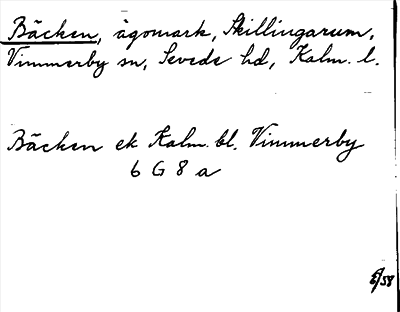 Bäcken, ägomark, Skillingarum,
Vimmerby sn, Sevede hd, Kalm. l.
Bäcken ek Kalm. bl. Vimmerby
6 G 8 a
E/58